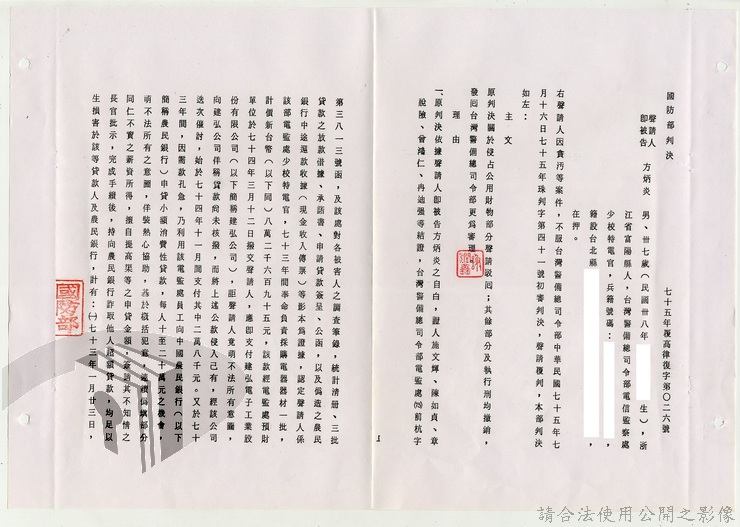 國防部判決
七十五年覆高律復字第〇二六號
聲請人
即被告 方炳炎 男、卅七歲（民國卅八年 生）、浙
江省富陽縣人，台灣警備總司令部電信監察處
少校特電官，兵籍號碼：
籍設台北縣
在押。
右聲請人因貪污等案件，不服台灣警備總司令部中華民國七十五年七
月十六日七十五年珠判字第四十一號初審判決，聲請覆判，本部判決
如左：
主文
原判決關於侵占公用財物部分聲請駁回；其餘部分及執行刑均撤銷，
發回台灣警備總司令部更為審理
理由
一、原判決依據聲請人即被告方炳炎之自白，證人施文輝、陳如貞、章
脫險、曾鴻仁、冉迪強等結證，台灣警備總司令部電監處㈣前杭字
1
第三八一三號函，及該處對各被害人之調查筆錄，統計清册、三批
貸款之放款借據、承諾書、申請貸款簽呈、公函，以及偽造之農民
銀行中途還款收據（現金收入傳票）等影本為證據，認定聲請人係
該部電監處少校特電官，七十三年間奉命負責採購電器器材一批，
計價新台幣（以下同）八萬二千六百九十五元，該款經電監處預財
單位於七十四年三月十二日撥交聲請人，應即支付建弘電子工業股
份有限公司（以下簡稱建弘公司），詎聲請人竟萌不法所有意圖，
向建弘公司佯稱貸款尚未核撥，而將上述公款侵入己有，經該公司
迭次催討，始於七十四年十一月間支付其中二萬八千元。又於七十
三年間，因需款孔急，乃利用該電監處員工向中國農民銀行（以下
簡稱農民銀行）申貸小額消費性貸款，每人十至二十萬元之機會，
萌不法所有之意圖，佯裝熱心協助，基於概括犯意，連續偽填部分
同仁不實之薪資所得，擅自提高渠等之申貸金額，簽請其不知情之
長官批示，完成手續後，持向農民銀行詐取他人超額貸款，均足以
生損害於該等貸款人及農民銀行，計有：㈠七十三年一月廿三日，
國防部
請合法使用公開之影像